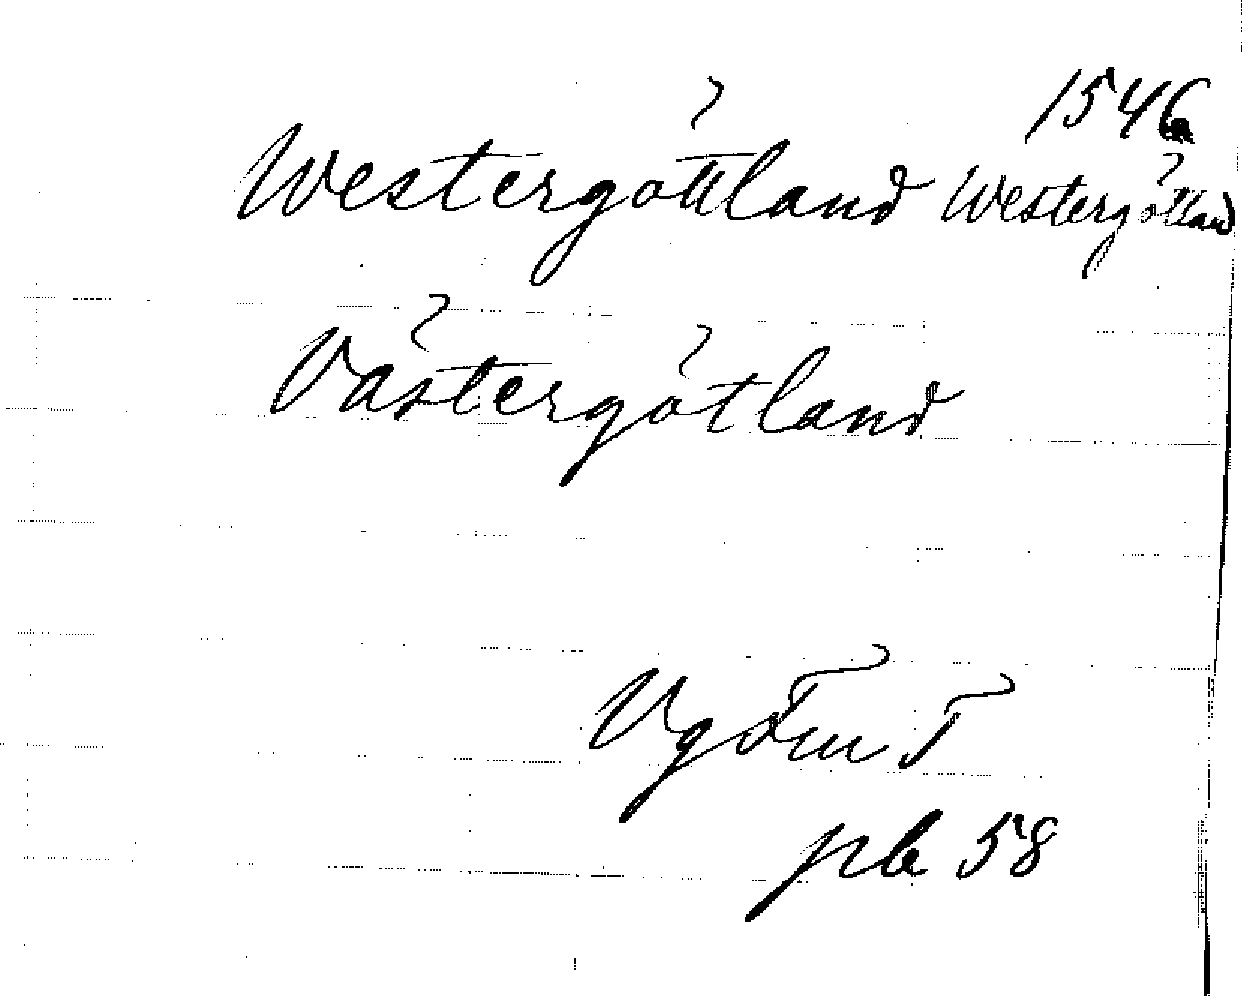 1546
Westergöttland Westergötland
Västergötland
Vg Tm T
pb 58